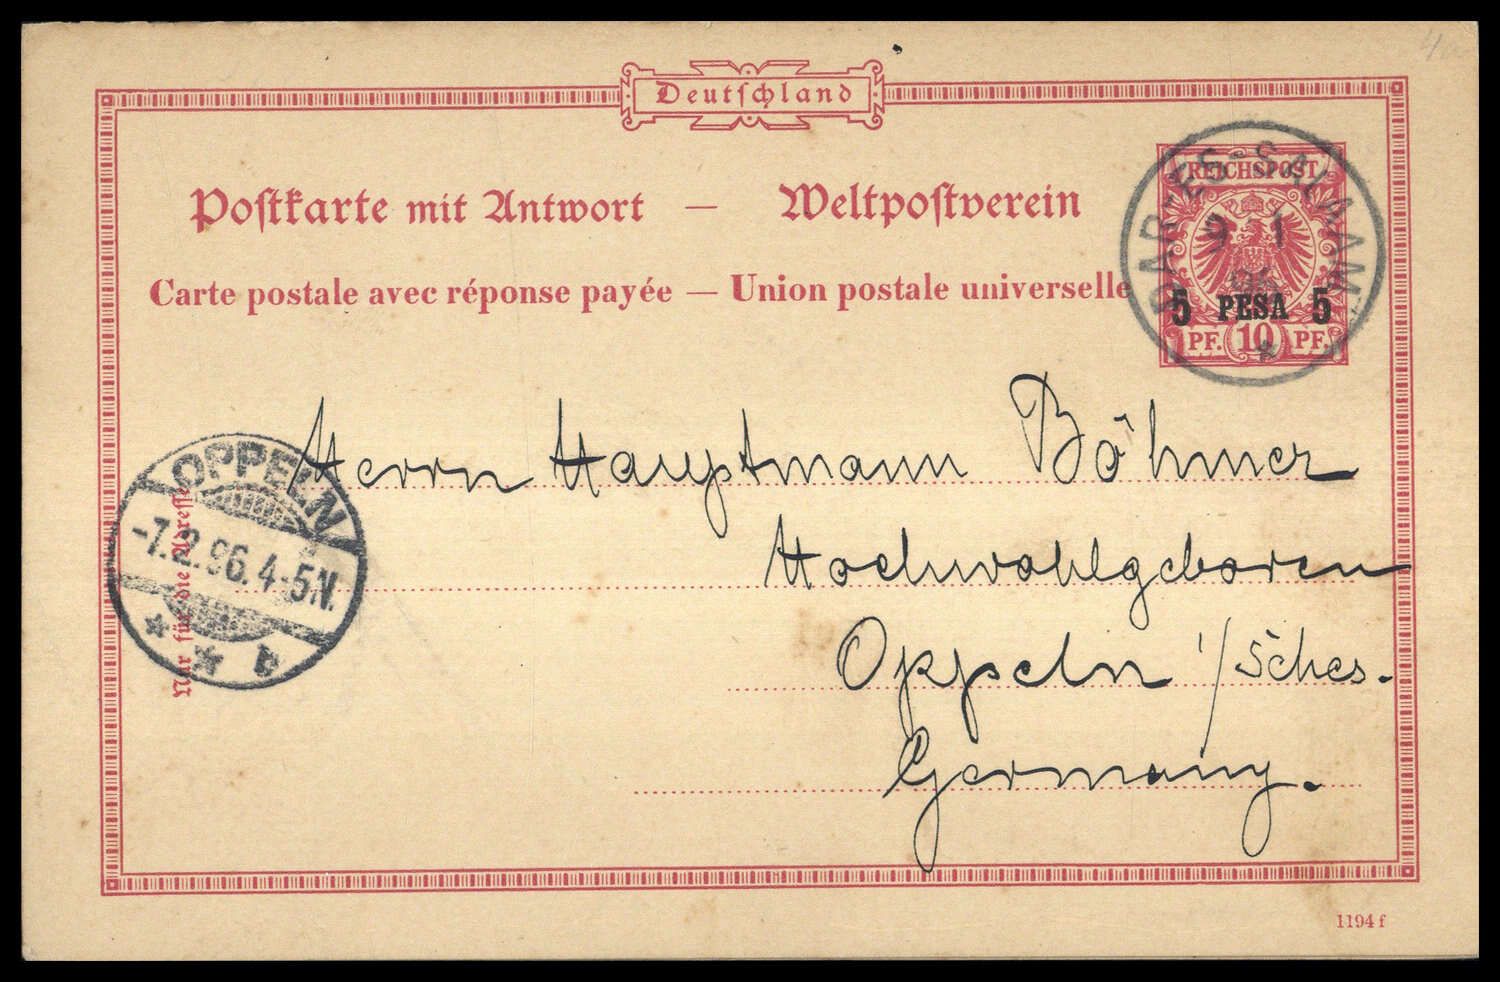 4a
Deutschland
Postkarte mit Antwort — Weltpostverein
Carte postale avec réponse payée — Union postale universelle
REICHSPOST
DAR-ES-SALAAM
9 1
96
5 PESA 5
PF. 10 PF.
Herrn Hauptmann Böhmer
Hochwohlgeboren
Oppeln i/Schles.
Germany.
OPPELN
-7.2.96.4-5N.
* * a
Nur für die Adresse
1194 f